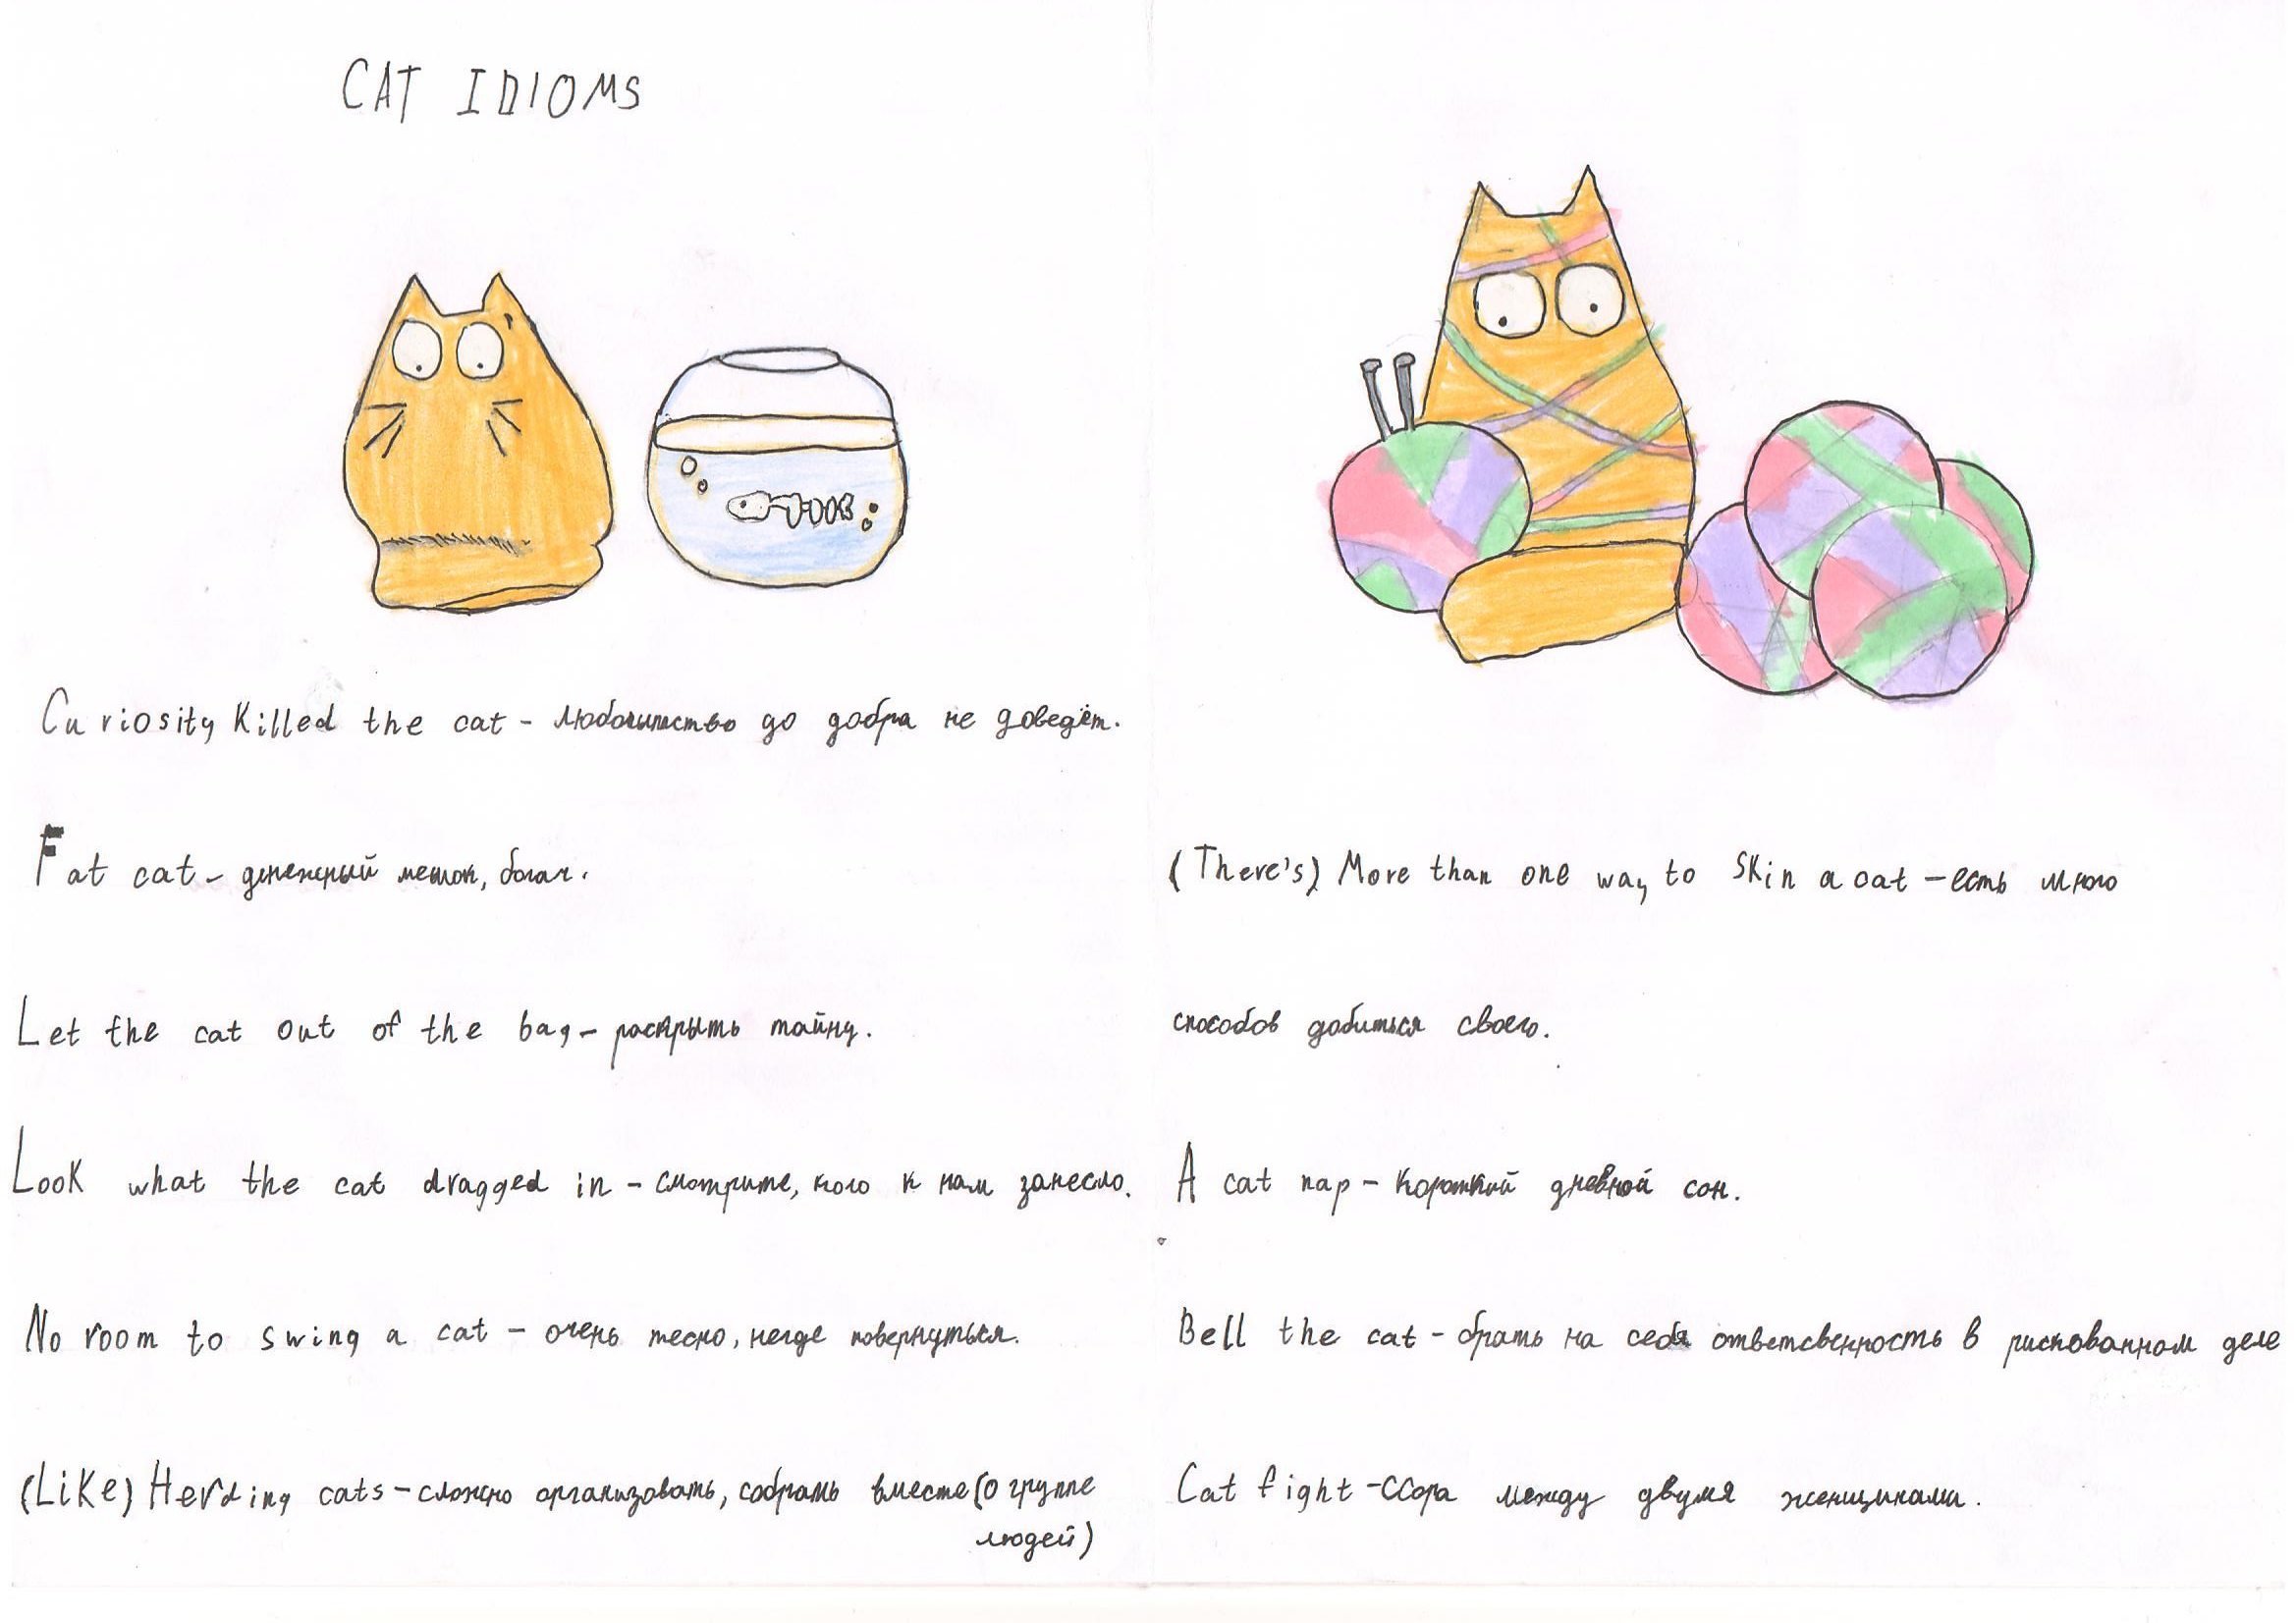 CAT IDIOMS
Curiosity Killed the cat - любопытство до добра не доведёт.
Fat cat - денежный мешок, богач.
Let the cat out of the bag - раскрыть тайну.
Look what the cat dragged in - смотрите, кого к нам занесло.
No room to swing a cat - очень тесно, негде повернуться.
(Like) Herding cats - сложно организовать, собрать вместе (о группе
людей)
(There's) More than one way to skin a cat - есть много
способов добиться своего.
A cat nap - короткий дневной сон.
Bell the cat - брать на себя ответсвенность в рискованном деле
Cat fight - ссора между двумя женщинами.